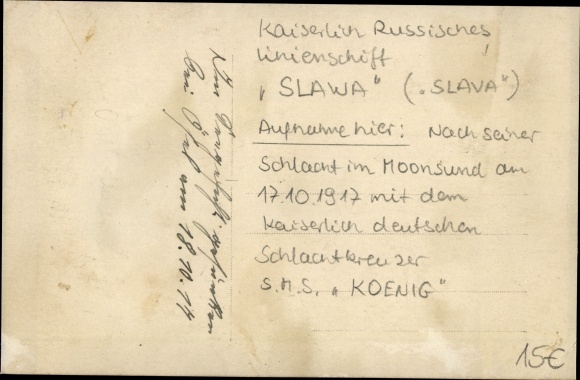 Kaiserlich Russisches
Linienschiff
„SLAWA" („SLAVA")
Aufnahme hier: Nach seiner
Schlacht im Moonsund am
17.10.1917 mit dem
Kaiserlich deutschen
Schlachtkreuzer
S.M.S. „KOENIG"
gesunken
bei Ösel am 18.10.17
15€